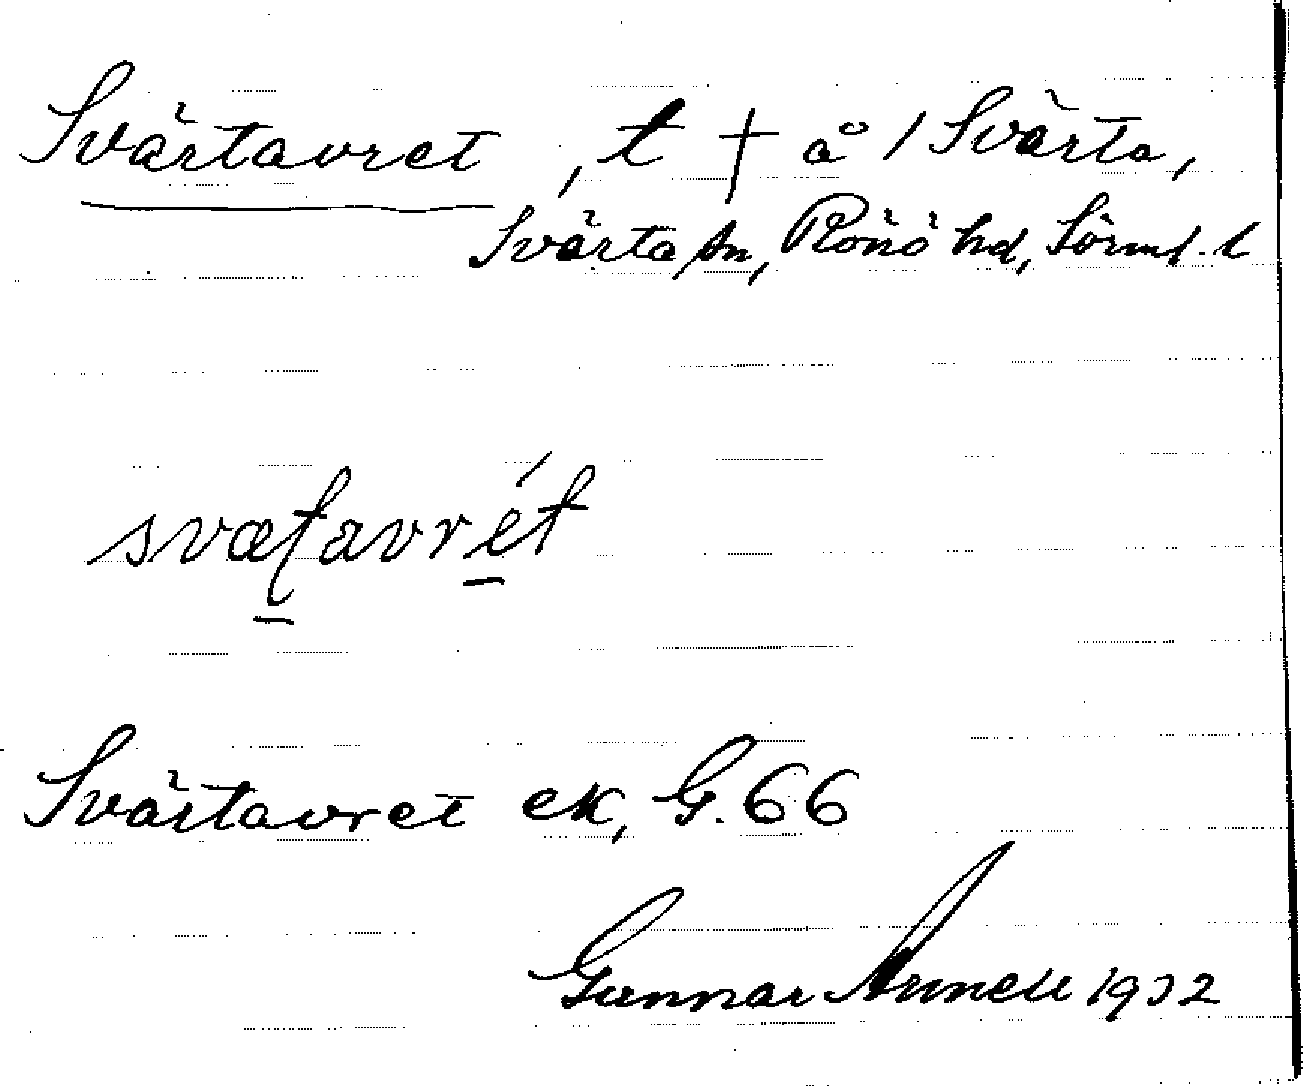 Svärtavret, t † å / Svärta,
Svärta sn, Rönö hd, Sörml. l
svæʈavrét
Svärtavret ek, G. 66
Gunnar Annell 1932